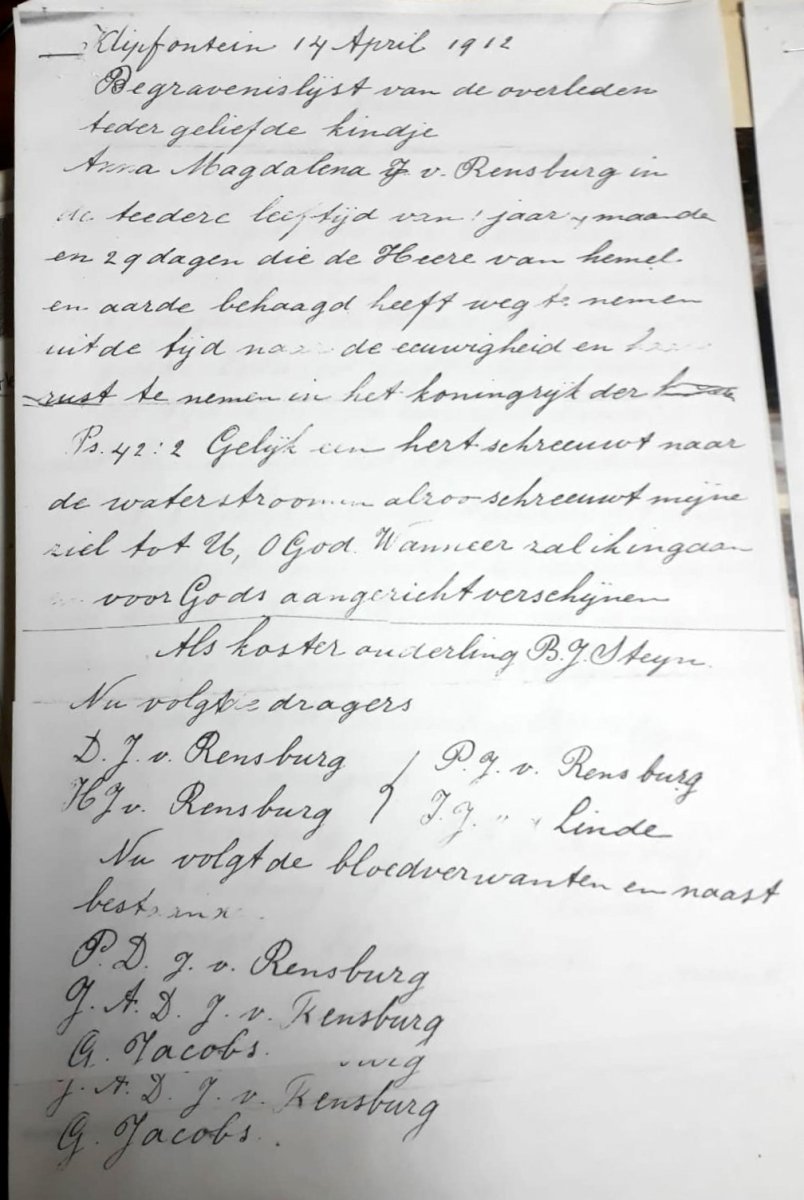 Klipfontein 14 April 1912
Begravenislijst van de overleden
teder geliefde kindje
Anna Magdalena J v. Rensburg in
de teedere leeftijd van 1 jaar maande
en 29 dagen die de Heere van hemel
en aarde behaagd heeft weg te nemen
uit de tijd naar de eeuwigheid en
rust te nemen in het koningrijk der
Ps. 42:2 Gelijk een hert schreeuwt naar
de waterstroomen alzoo schreeuwt mijne
ziel tot U, O God. Wanneer zal ik ingaan
voor Gods aangezicht verschijnen
Als koster ouderling B.J. Steyn.
Nu volgt de dragers
D. J. v. Rensburg P. J. v. Rensburg
H J v. Rensburg J. J. " " Linde
Nu volgt de bloedverwanten en naast
P. D. J. v. Rensburg
J. A. D. J. v. Rensburg
G. Jacobs.
J. A. D. J. v. Rensburg
G. Jacobs.